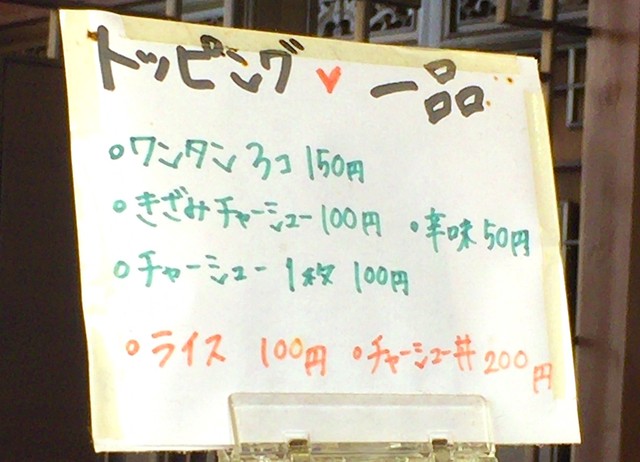 トッピング ♥ 一品
◦ワンタン 3コ 150円
◦きざみチャーシュー 100円 ◦辛味 50円
◦チャーシュー 1枚 100円
◦ライス 100円 ◦チャーシュー丼 200円